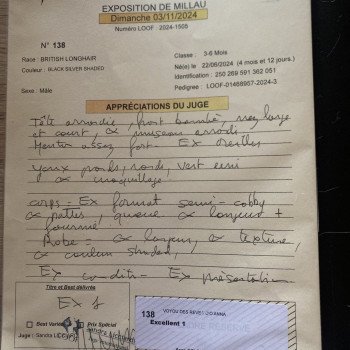 EXPOSITION DE MILLAU
Dimanche 03/11/2024
Numéro LOOF : 2024-1505
N° 138
Race : BRITISH LONGHAIR
Couleur : BLACK SILVER SHADED
Sexe : Mâle
Classe : 3-6 Mois
Né(e) le 22/06/2024 (4 mois et 12 jours.)
Identification : 250 269 591 362 051
Pedigree : LOOF-01466957-2024-3
APPRÉCIATIONS DU JUGE
Tête arrondie, front bombé, nez large
et court, museau arrondi
Menton assez fort. Ex oreilles
Yeux ronds, vert
maquillage
corps - Ex format semi-cobby
pattes, queue longueur +
fournie
Robe - longueur, texture,
couleur shaded,
Ex condition - Ex présentation
Titre et Best délivrés
Ex 1
Best Variété
Prix Spécial
Juge :
138
Excellent 1